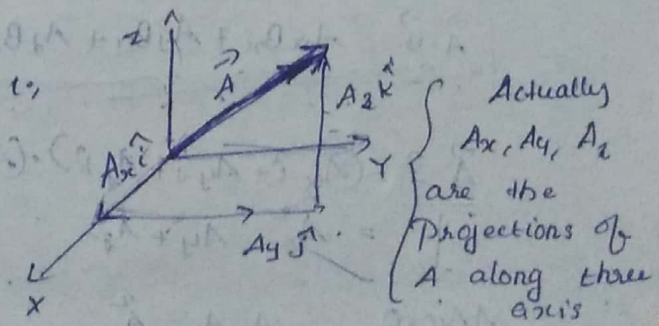 Z
i,
A⃗
A_z k̂
A_x î
Y
A_y ĵ
X
Actually
Ax, Ay, Az
are the
Projections of
A along three
axis